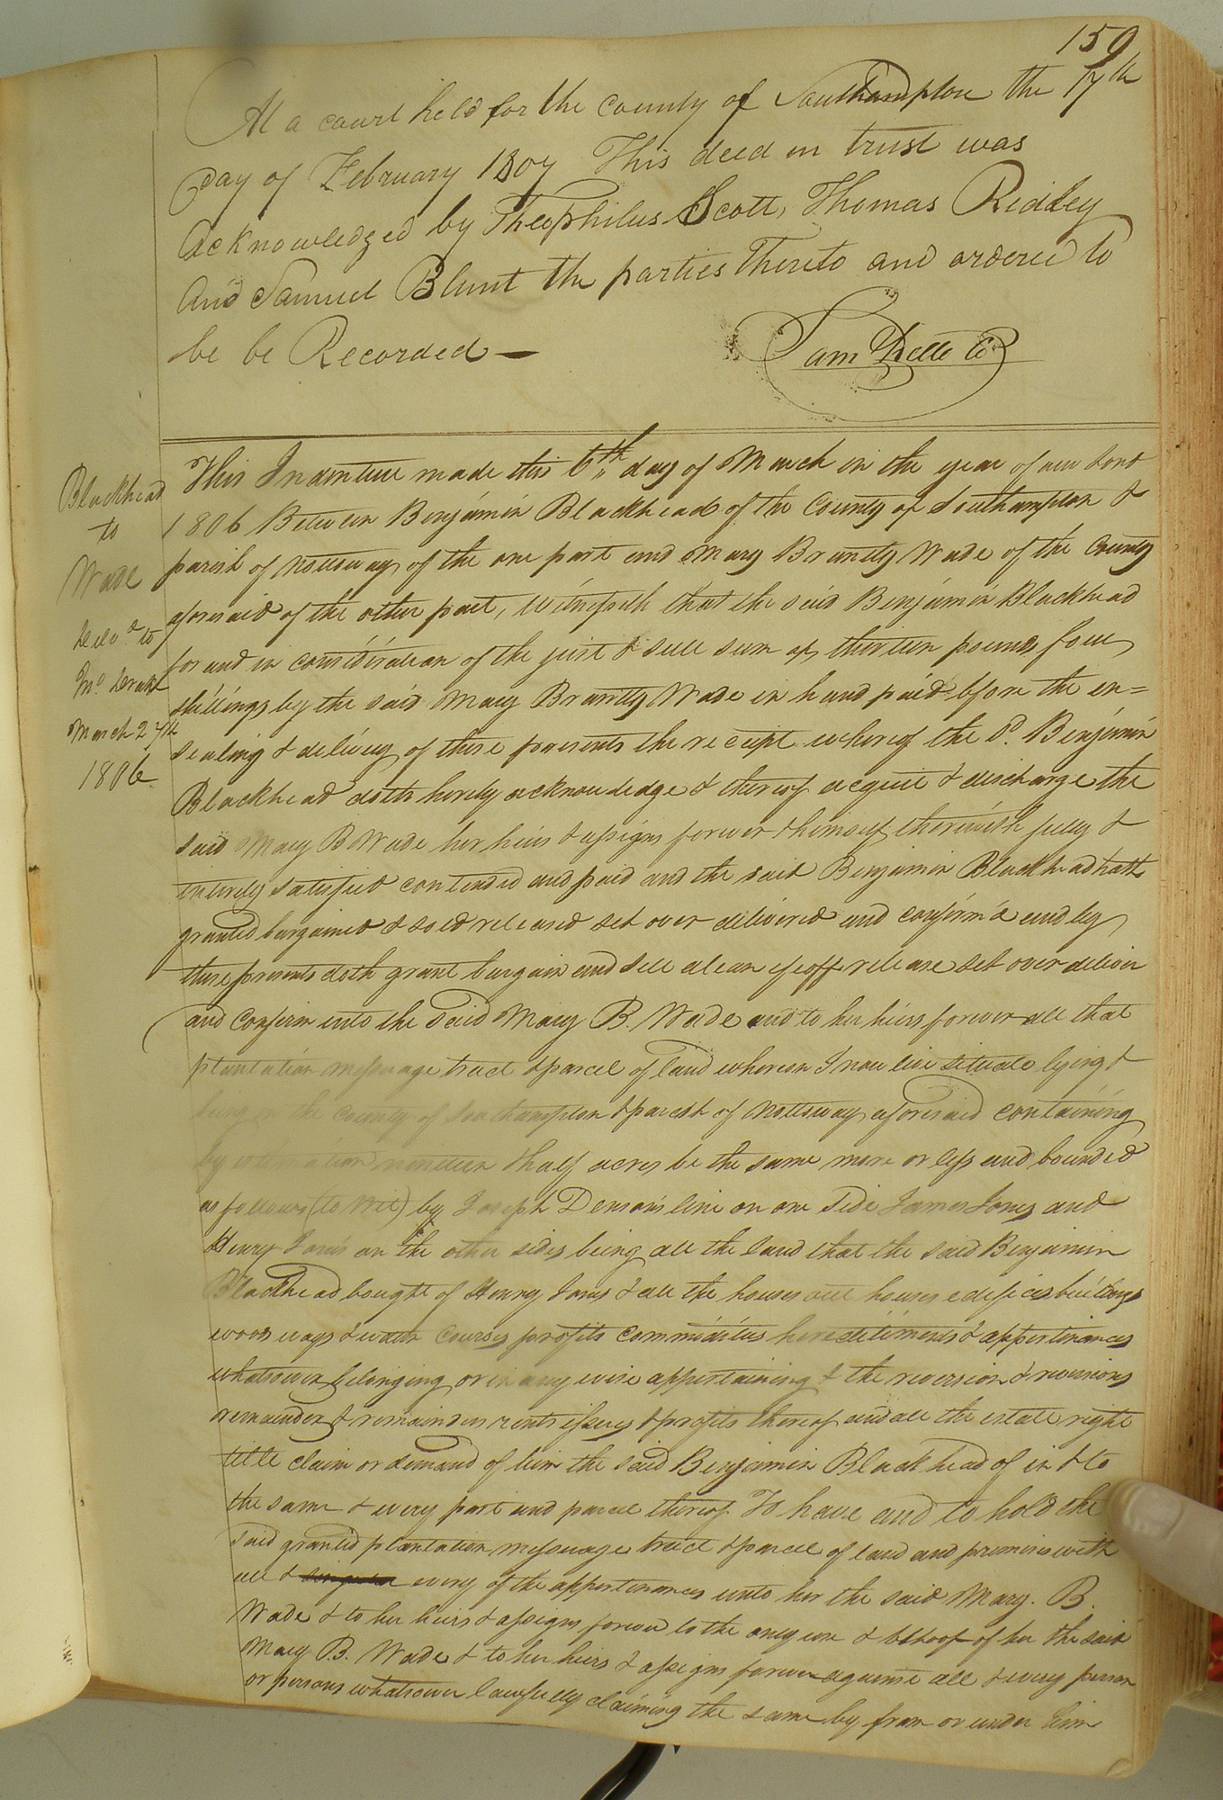 159
At a court held for the county of Southampton the 17th
Day of February 1807 This deed in trust was
Acknowledged by Theophilus Scott, Thomas Ridley
And Samuel Blunt the parties Thereto and ordered to
be be Recorded —
Sam Kello Cl
Blackhead
to
Wade
Deliv.d to
March 27th
1806
This Indenture made this 6th day of March in the year of our Lord
1806 Between Benjamin Blackhead of the County of Southampton &
parish of Nottoway of the one part and Mary Brantly Wade of the County
aforesaid of the other part, Witnesseth that the said Benjamin Blackhead
for and in consideration of the just & full sum of thirteen pounds four
shillings by the said Mary Brantly Wade in hand paid before the en=
sealing & delivery of these presents the receipt whereof the Sd. Benjamin
Blackhead doth hereby acknowledge & thereof acquit & discharge the
said Mary B Wade her heirs & assigns forever & himself therewith fully &
entirely satisfied contended and paid and the said Benjamin Blackhead hath
granted bargained & sold released set over delivered and confirm'd and by
these presents doth grant bargain and sell alean efeoff release set over deliver
and confirm unto the said Mary B. Wade and to her heirs forever all that
plantation messuage tract & parcel of land whereon I now live situate lying &
being in the County of Southampton & parish of Nottoway aforesaid containing
by estimation nineteen & half acres be the same more or less and bounded
as follows (to wit) by Joseph Denson's line on one side James Jones and
Henry Jones on the other sides being all the land that the said Benjamin
Blackhead bought of Henry Jones & all the houses out houses edifices buildings
woods ways & water courses profits commodities hereditiments & appertinances
whatsoever belonging or in any wise appertaining & the reversion & reversions
remainder & remainders rents issues & profits thereof and all the estate right
title claim or demand of him the said Benjamin Blackhead of in & to
the same & every part and parcel thereof To have and to hold the
said granted plantation messuage tract & parcel of land and premises with
all & every of the appertinances unto her the said Mary. B.
Wade & to her heirs & assigns forever to the only use & behoof of her the said
Mary B. Wade & to her heirs & assigns forever against all & every person
or persons whatsoever lawfully claiming the same by from or under him